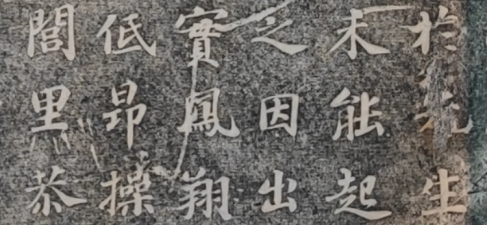 於先生
未能起
之因出
實鳳翔
低昂操
閭里恭